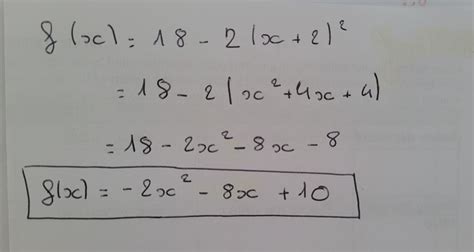 f(x) = 18 - 2(x+2)²
= 18 - 2(x²+4x+4)
= 18 - 2x² - 8x - 8
f(x) = -2x² - 8x + 10